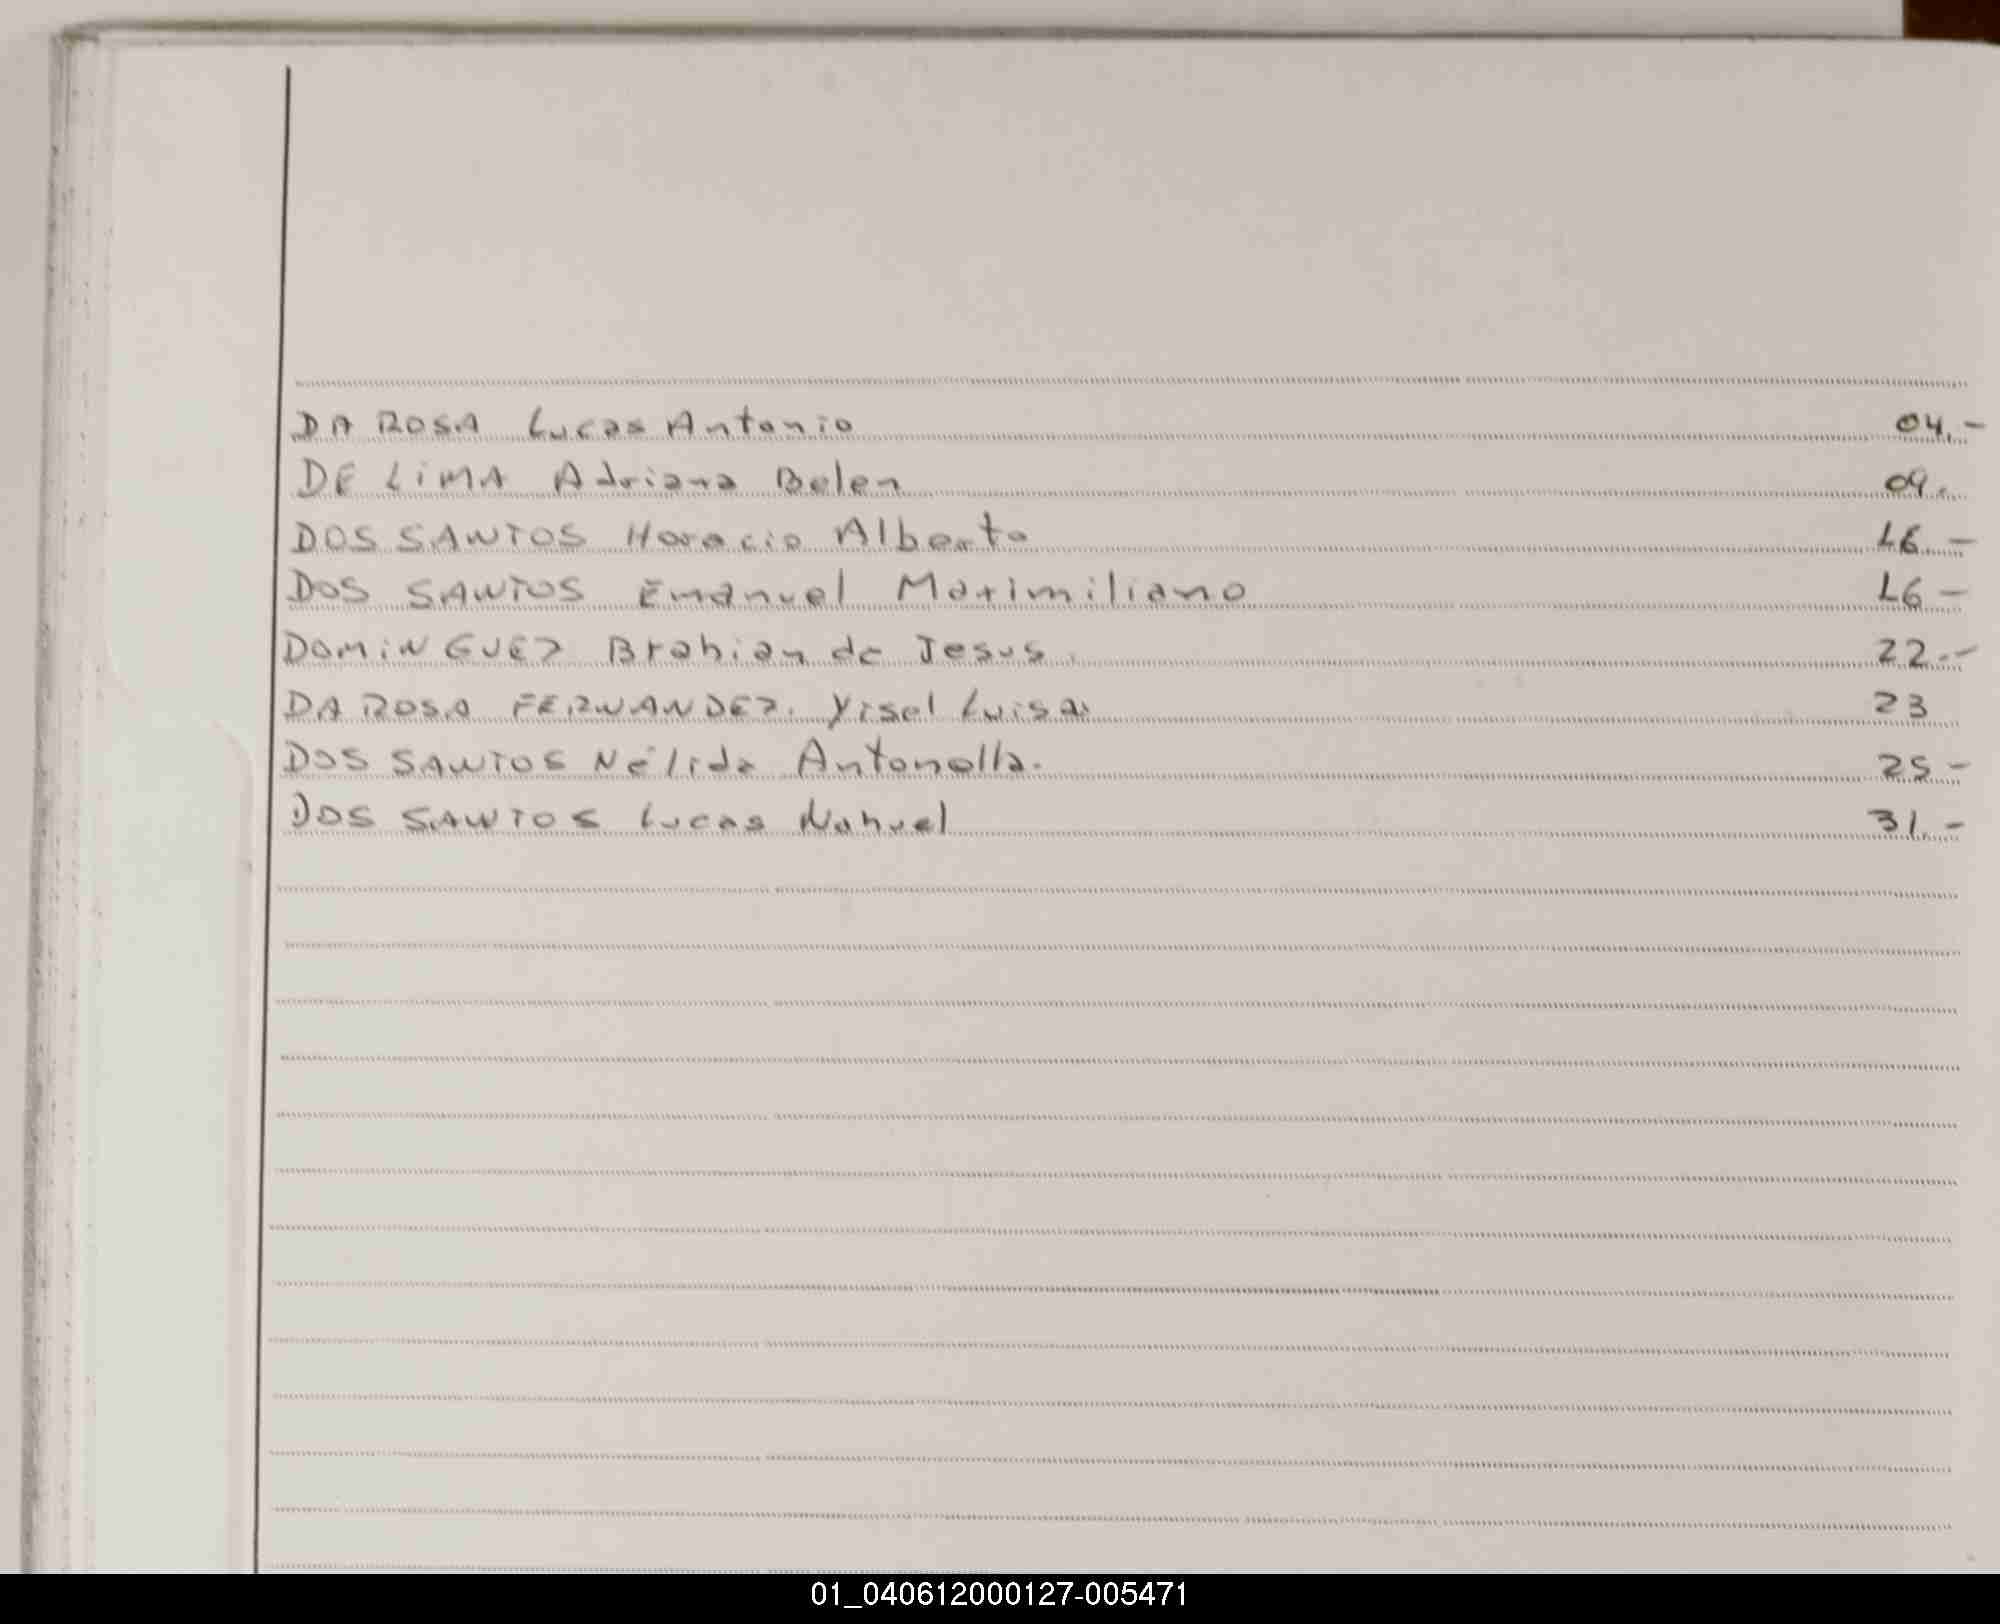 DA ROSA Lucas Antonio 04.-
DE LiMA Adriana Belen 09.
DOS SANTOS Horacio Alberto 16 -
DOS SANTOS Emanuel Maximiliano 16 -
DOMiNGUEZ Brahian de Jesus. 22.-
DA ROSA FERNANDEZ. Yisel Luisa. 23
DOS SANTOS Nélida Antonella. 25 -
DOS SANTOS Lucas Nahuel 31.-
01_040612000127-005471